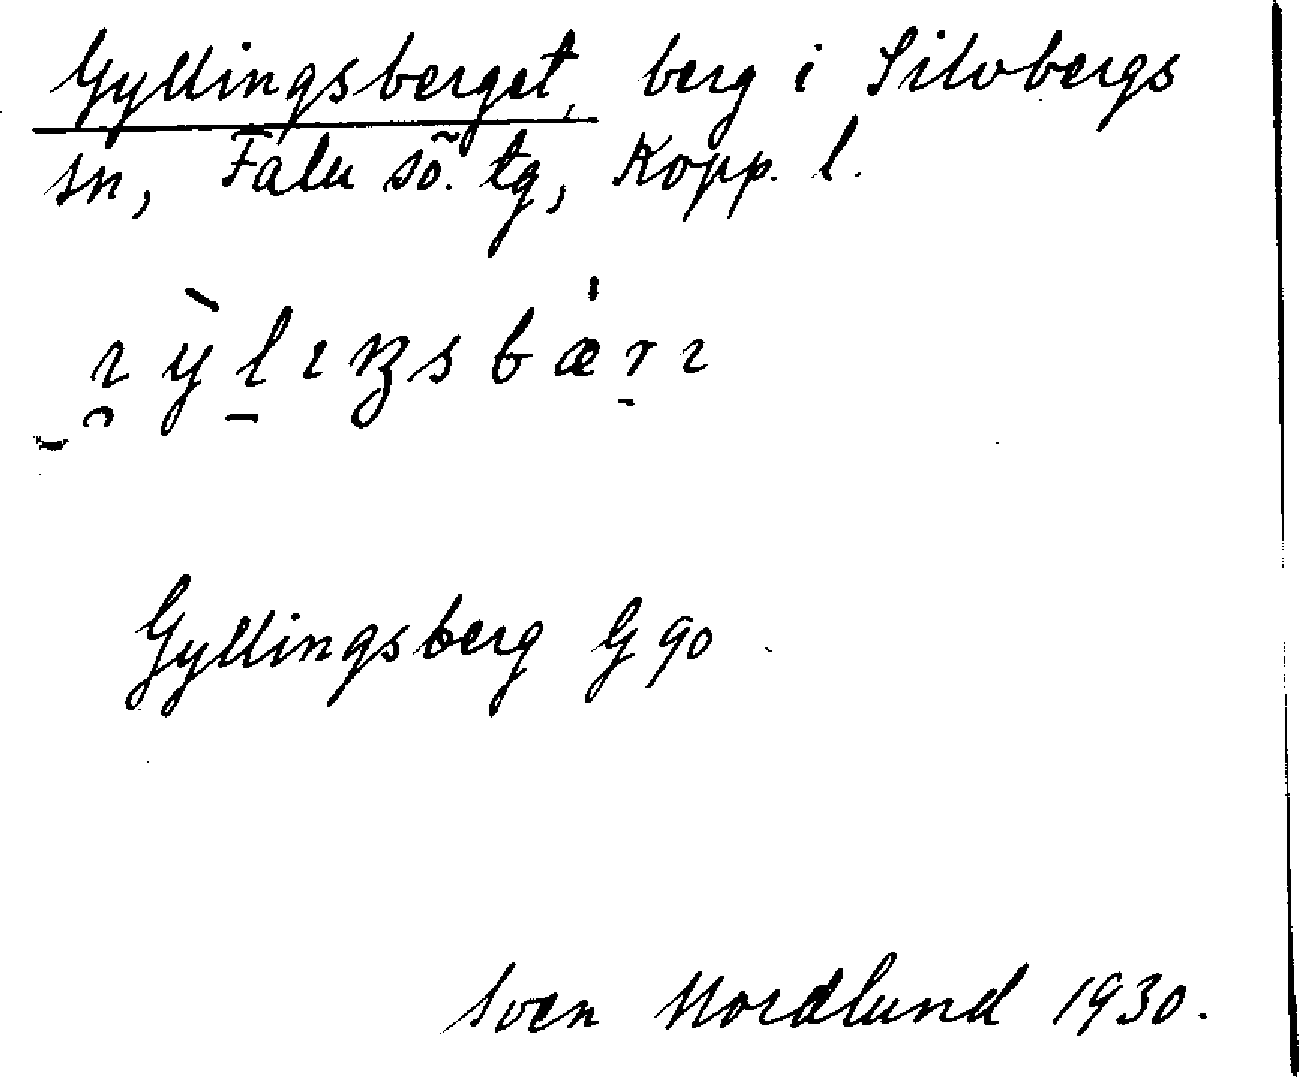 Gyllingsberget, berg i Silvbergs
sn, Falu sö. tg, Kopp. l.
Gyllingsberg G 90
Sven Nordlund 1930.